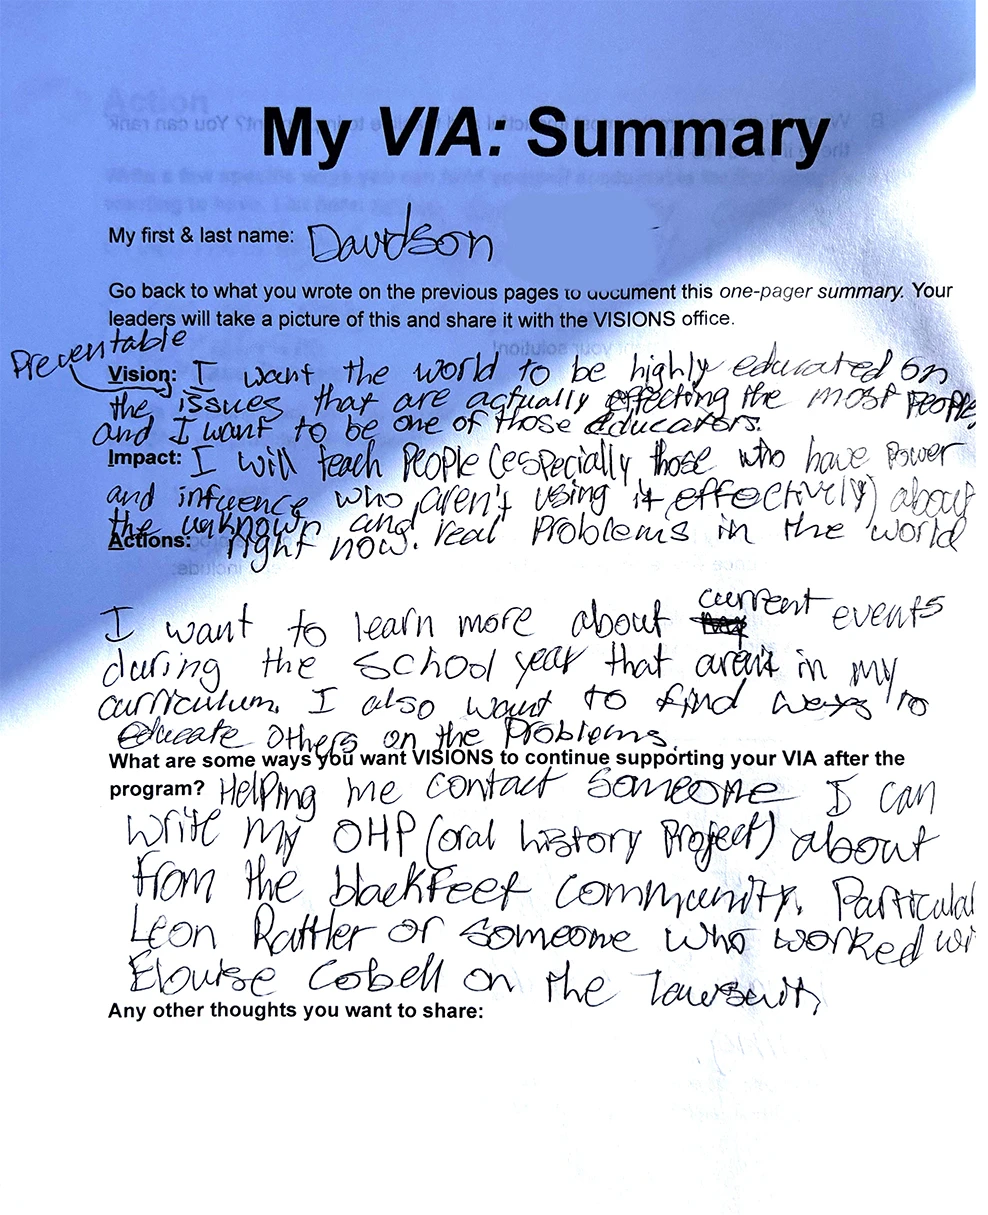 My VIA: Summary
My first & last name: Davidson
Go back to what you wrote on the previous pages to document this one-pager summary. Your
leaders will take a picture of this and share it with the VISIONS office.
Preventable
Vision: I want the world to be highly educated on
the issues that are actually effecting the most People
and I want to be one of those educators.
Impact: I will teach People (especially those who have Power
and infuence who aren't using it effectively) about
the unknown and real Problems in the world
Actions: right now.
I want to learn more about current events
during the school year that aren't in my
curriculum. I also want to find ways to
educate others on the Problems.
What are some ways you want VISIONS to continue supporting your VIA after the
program? Helping me contact someone I can
write my OHP (oral history Project) about
from the blackfeet community. Particular
Leon Rattler or someone who worked wi
Elouise Cobell on the lawsuit,
Any other thoughts you want to share: